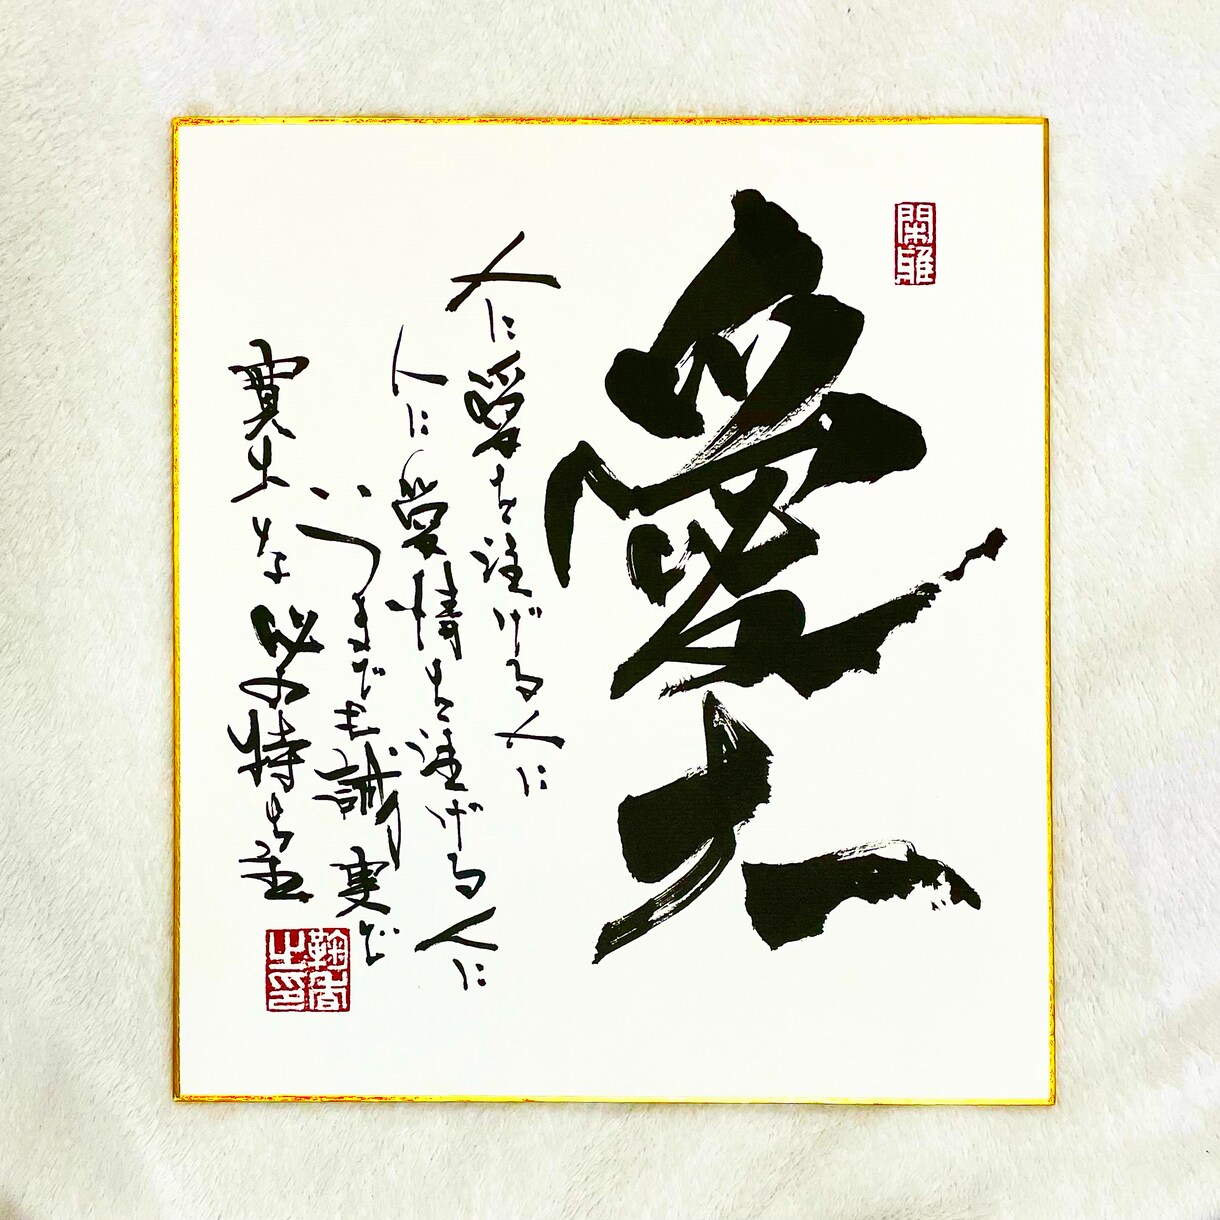 閑雅
愛大
人に愛を注げる人に
人に愛情を注げる人に
いつまでも誠実で
寛大な心の持ち主